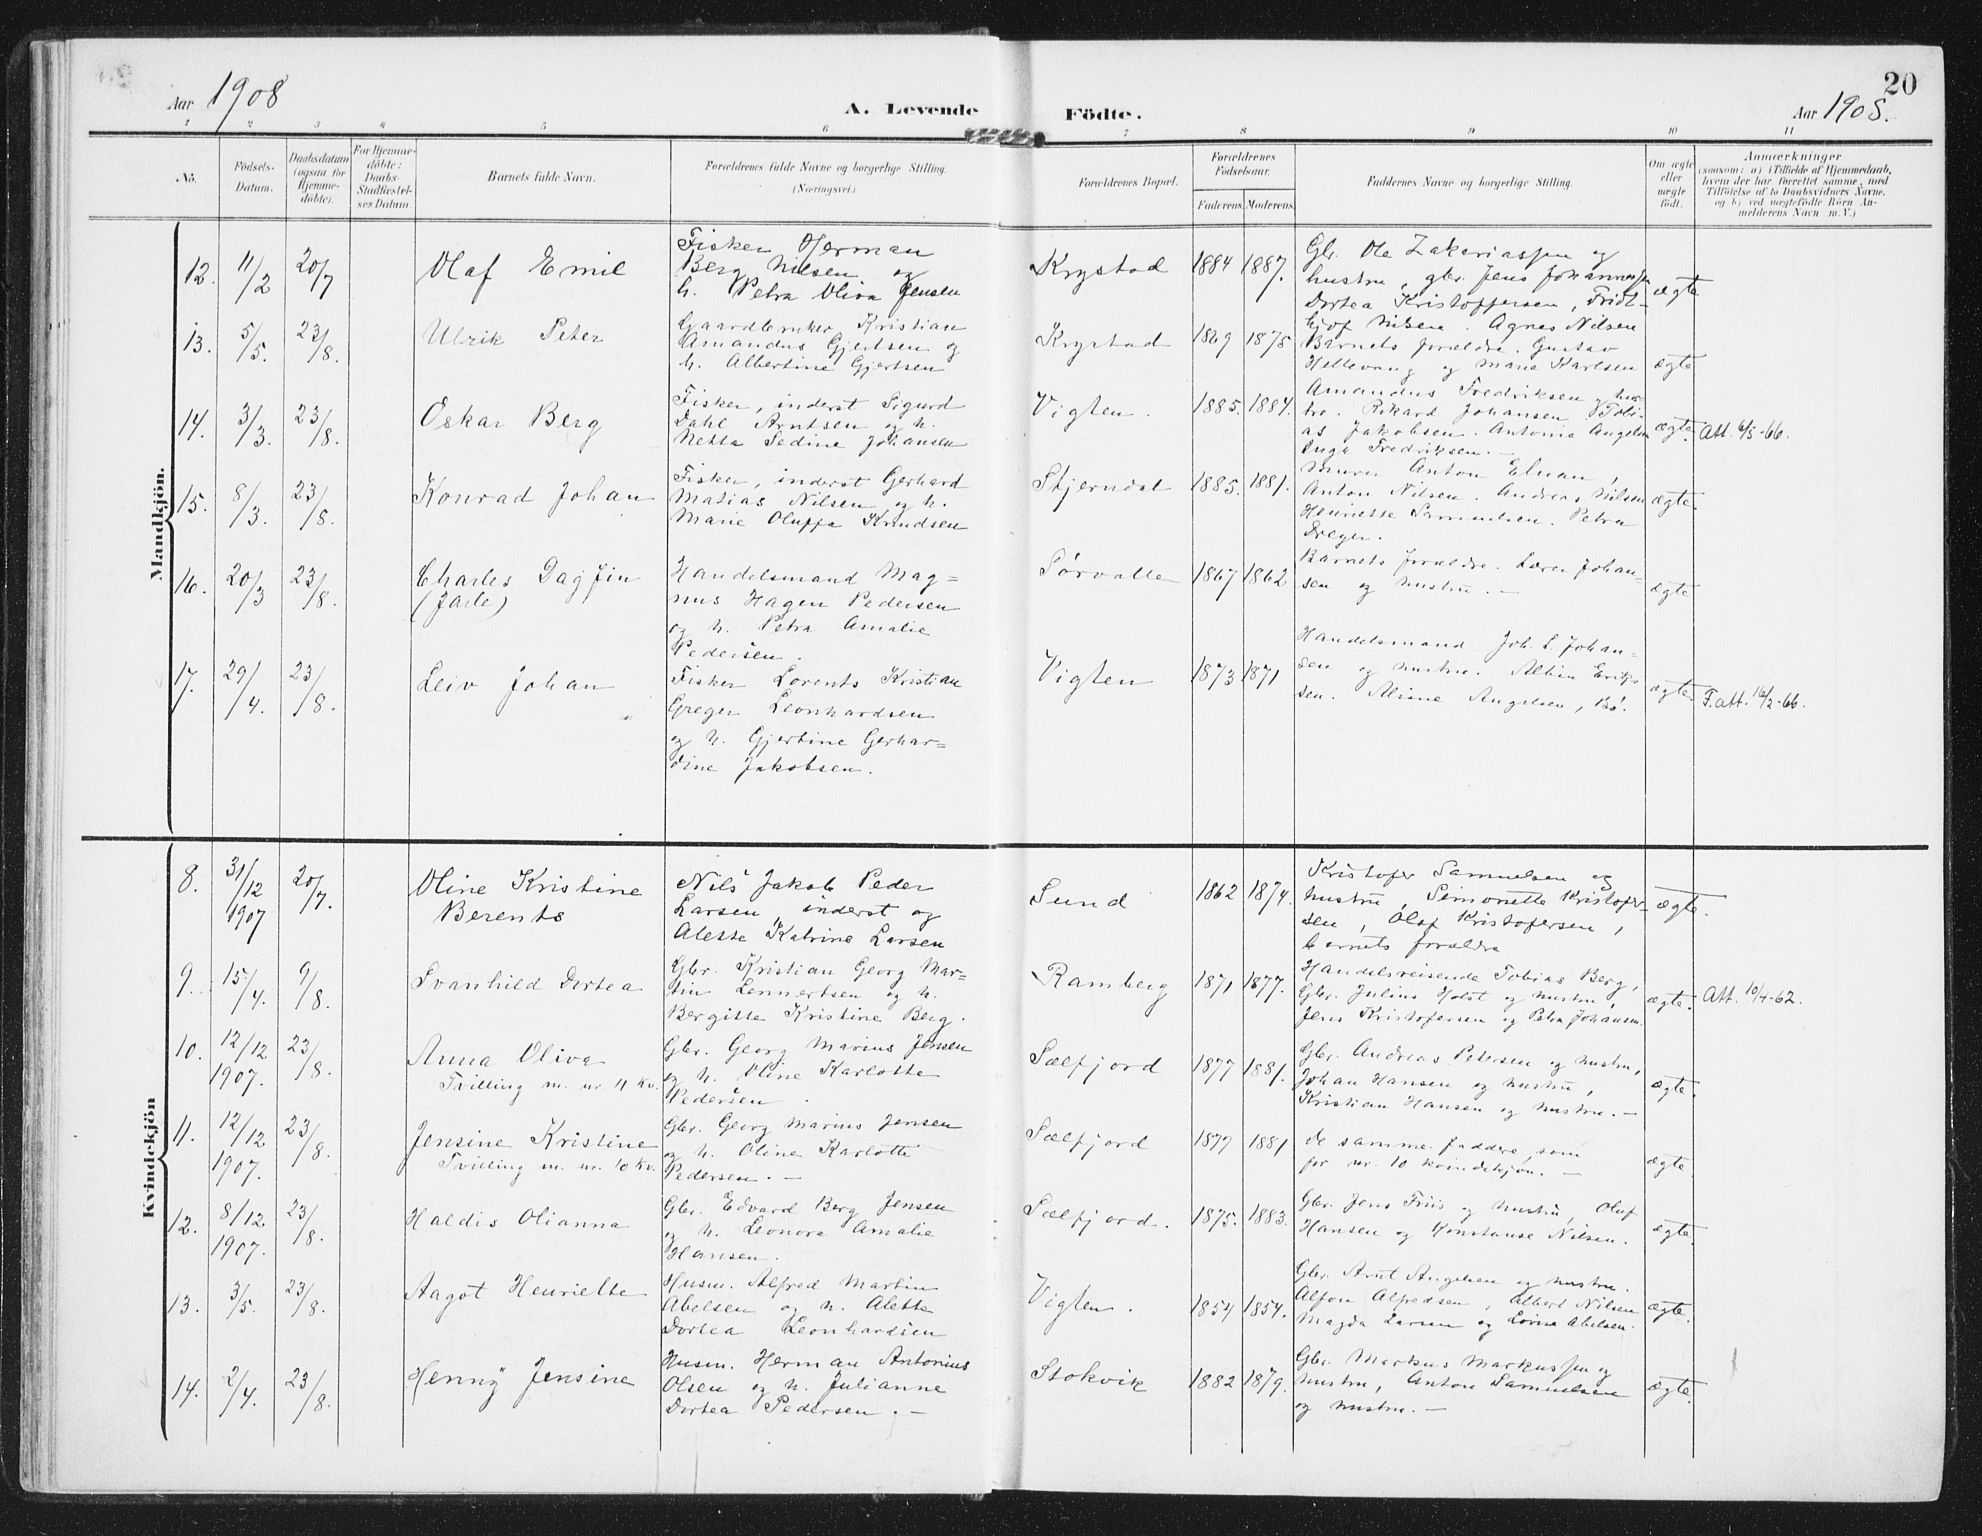 Aar 1908
A. Levende Födte.
Aar 1908.
20
1 2 3 4 5 6 7 8 9 10 11
No.
Födsels-
Datum.
Daabsdatum
(ogsaa for
Hjemme-
döbte).
For Hjemme-
döbte:
Daabs-
Stadfæstel-
ses Datum.
Barnets fulde Navn.
Forældrenes fulde Navne og borgerlige Stilling.
(Næringsvei.)
Forældrenes Bopæl.
Forældrenes
Födselsaar.
Faderens. Moderens.
Faddernes Navne og borgerlige Stilling.
Om ægte
eller
uægte
födt.
Anmærkninger
(saasom: a) i Tilfælde af Hjemmedaab,
hvem der har forrettet samme, med
Tilföielse af to Daabsvidners Navne.
og b) ved uægtefödte Börn An-
melderens Navn m. V.)
Mandkjön.
12. 11/2 20/7
Olaf Emil
Fisker Herman
Berg Nilsen og
h. Petra Oliva Jensen
Krystad 1884 1887.
Gbr. Ole Zakariassen og
hustru, gbr. Jens Johannessen
Dortea Kristoffersen, Fridt-
hjof Nilsen. Agnes Nilsen
ægte
13. 5/5. 23/8.
Ulrik Peter
Gaardbruker Kristian
Amandus Gjertsen og
h. Albertine Gjertsen
Krystad 1869 1875
Barnets forældre. Gustav
Hellevang og Marie Karlsen
ægte
14. 3/3. 23/8.
Oskar Berg
Fisker, inderst Sigurd
Dahl Arntsen og h.
Netta Sedine Johansen
Vigten. 1885. 1884.
Amandus Fredriksen og hus-
tro. Rikard Johansen Tobi-
as Jakobsen. Antonie Angelsen
Inga Fredriksen. —
ægte.
Att. 6/5-66.
15. 8/3. 23/8.
Konrad Johan
Fisker, inderst Gerhard
Matias Nilsen og h.
Marie Oluffa Knudsen
Stjerndal 1885. 1881.
Murer Anton Elnan,
Anton Nilsen. Andreas Nilsen
Henriette Samuelsen. Petra
Dreyer.
ægte.
16. 20/3 23/8.
Charles Dagfin
(Jarle)
Handelsmand Mag=
nus Hagen Pedersen
og h. Petra Amalie
Pedersen.
Sørvalle 1867 1862
Barnets forældre. Lærer Johan-
sen og hustru. —
ægte
17. 29/4. 23/8.
Leiv Johan
Fisker Lorents Kristian
Greger Leonhardsen
og h. Gjertine Gerhar=
dine Jakobsen.
Vigten 1873 1871
Handelsmand Joh. L. Johan-
sen og hustru. Albin Erik-
sen. Aline Angelsen, Bø.
ægte.
F.att. 16/2-66.
Kvindekjön
8. 31/12 1907 20/7.
Oline Kristine
Berents
Nils Jakob Peder
Larsen, inderst og
Alette Katrine Larsen
Sund 1862 1874.
Kristofer Samuelsen og
hustru, Simonette Kristofer-
sen, Olaf Kristofersen,
barnets forældre
ægte.
9. 15/4. 9/8.
Svanhild Dortea
Gbr. Kristian Georg Mar-
tin Lennertsen og h.
Bergitte Kristine Berg.
Ramberg 1871 1877.
Handelsreisende Tobias Berg,
Gbr. Julius Holst og hustru,
Jens Kristofersen og Petra Johansen.
ægte.
Att. 10/4-62.
10. 12/12 1907. 23/8.
Anna Oliva
Tvilling m. nr. 11 kv.
Gbr. Georg Marius Jensen
og h. Oline Karlotte
Pedersen.
Sælfjord 1877 1881.
Gbr. Andreas Petersen og hustru,
Johan Hansen og hustru,
Kristian Hansen og hustru. —
ægte.
11. 12/12 1907. 23/8.
Jensine Kristine
Tvilling m. nr. 10 kv.
Gbr. Georg Marius Jensen
og h. Oline Karlotte
Pedersen. —
Sælfjord 1877 1881
de samme faddere som
for nr. 10 kvindekjøn. —
ægte
12. 8/12 1907. 23/8.
Haldis Olianna
Gbr. Edvard Berg Jensen
og h. Leonora Amalie
Hansen.
Sælfjord. 1875. 1883.
Gbr. Jens Friis og hustru, Oluf
Hansen og Konstanse Nilsen.
ægte.
13. 3/5. 23/8.
Aagot Henriette
Husm. Alfred Martin
Abelsen og h. Alette
Dortea Leonhardsen
Vigten. 1854 1854.
Gbr. Arnt Angelsen og hustru.
Alfon Alfredsen, Albert Nilsen
Magda Larsen og Lovise Abelsen.
ægte.
14. 2/4. 23/8.
Henny Jensine
Husm. Herman Antonius
Olsen og h. Julianne
Dortea Pedersen. —
Stokvik 1882 1879.
Gbr. Markus Markussen og
hustru, Anton Samuelsen
og hustru. —
ægte.